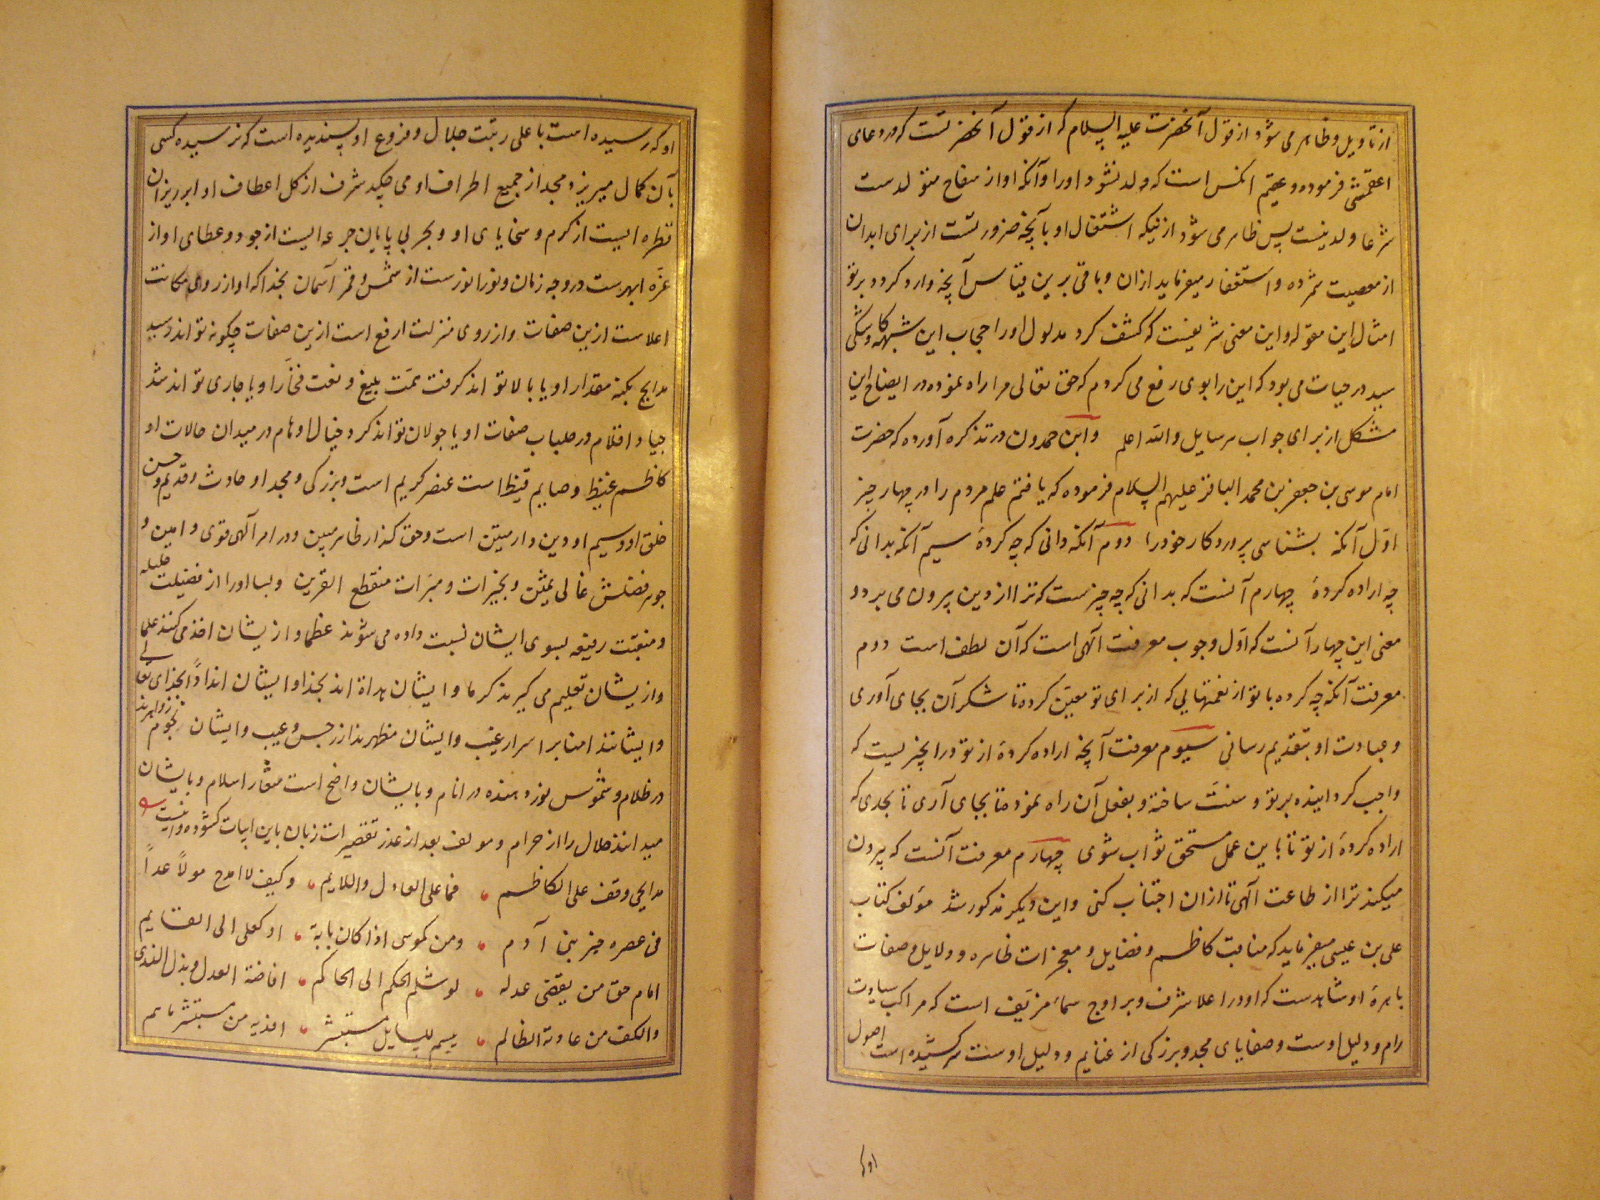 از تاویل و ظاهر می شود از قول آنحضرت علیه السلام که از قول آنحضرتست که در دعای
اعقمتنی فرموده و عقیم انکس است که ولد نشود اورا و آنکه اواز سفاح متولدست
شرعا ولد نیست پس ظاهر می شود ازینکه اشتغال او بآنچه ضرورتست از برای ابدان
از معصیت شمرده و استغفار میفرماید ازان و باقی برین قیاس آنچه وارد کردد بر تو
امثال این مقوله و این معنی شریفیست که کشف کرد مدلول اورا حجاب این شبهه کاوشکی
سید در حیات می بود که این را بوی رفع می کردم که حق تعالی مرا راه نموده در ایضاح این
مشکل از برای جواب هر سایل والله اعلم وابن حمدون در تذکره آورده که حضرت
امام موسی بن جعفر بن محمد الباقر علیهم السلام فرموده که یافتم علم مردم را در چهار چیز
اول آنکه بشناسی پروردکار خودرا دوم آنکه دانی که چه کردهٔ سیم آنکه بدانی که
چه اراده کردهٔ چهارم آنست که بدانی که چه چیزست که ترا از دین بیرون می برد و
معنی این چهار آنست که اول وجوب معرفت الهی است که آن لطف است دوم
معرفت آنکه چه کرده با تو از نعمتهایی که از برای تو معین کرده تا شکر آن بجای آوری
و عبادت او بتقدیم رسانی سیوم معرفت آنچه اراده کردهٔ از تو در آنچیزیست که
واجب کردانیده بر تو و سنت ساخته و بفعل آن راه نموده تا بجای آری تا بحدی که
اراده کردهٔ از تو تا باین عمل مستحق ثواب شوی چهارم معرفت آنست که بیرون
میکند ترا از طاعت الهی تا ازان اجتناب کنی و این دیکر مذکور شد مؤلف کتاب
علی بن عیسی میفرماید که مناقب کاظم و فضایل و معجزات ظاهره و دلایل و صفات
باهرهٔ او شاهدست که او در اعلا شرف و بر اوج سماء مزیف است که مراکب سیادت
رام و دلیل اوست و صفایای مجد و بزرکی از غنایم و دلیل اوست سر کشیده است اصول
او که
او که رسیده است با علی رتبت جلال و فروع او پسندیده است که نرسیده کسی
بآن کمال میریزد مجد از جمیع اطراف او می چکید شرف از کل اعطاف او ابر ریزان
قطره ایست از کرم و سخایای او و بحر بی پایان جرعه ایست از جود و عطای او از
غره ابهرست در وجه زمان و نورانورست از شمس و قمر آسمان بخدا که او از روی مکانت
اعلاست ازین صفات و از روی منزلت ارفع است ازین صفات چکونه تواند رسید
مدایح بکنه مقدار او یا بالا تواند کرفت همت بلیغ و نعت فخار او یا جاری تواند شد
جیاد اقلام در طلباب صفات او یا جولان تواند کرد خیال اوهام در میدان حالات او
کاظم غیظ و صایم قیظ است عنصر کریم است و بزرکی و مجد او حادث و قدیم و حسن
خلق او وسیم او دین دار متین است و حق کذار ظاهر مبین و در امر آلهی قوی و امین و
جوهر فضلش غالی یمین و بخیرات و مبرات منقطع القرین و بسا اورا از فضیلت جلیله
و منقبت رفیعه بسوی ایشان نسبت داده می شوند عظما و از یشان اخذ می کنند علما
و از یشان تعلیم می کیرند کرما و ایشان هداة اند بخدا و ایشان انداد ابخدای تعالی
و ایشانند امنا بر اسرار غیب و ایشان مطهرند از رجس و عیب و ایشان نجوم زواهرند
در ظلام و شموس نورد هنده در انام و بایشان واضح است شعار اسلام و بایشان
میدانند حلال را از حرام و مولف بعد از عذر تقصیرات زبان باین ابیات کشوده و انیست
مدایحی وقف علی الکاظم فما علی العاذل واللایم وکیف لا امدح مولاً غدا
فی عصره خیر بنی آدم ومن کموسی اذا کان بابة او کعلی الی القایم
امام حق من یقضی عدله لو سُلم الحکم الی الحاکم افاضة العدل وبذل الندی
والکف من عادته الظالم یبسم للسایل مستبشر افدیه من مستبشر باسم